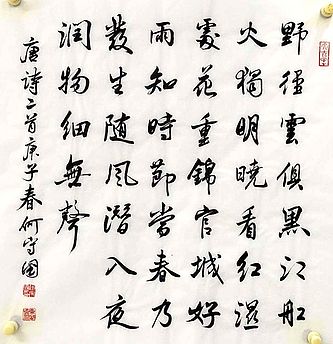 野徑雲俱黑江船
火獨明曉看紅濕
處花重錦官城好
雨知時節當春乃
發生随風潛入夜
潤物細無聲
唐詩二首庚子春何守國